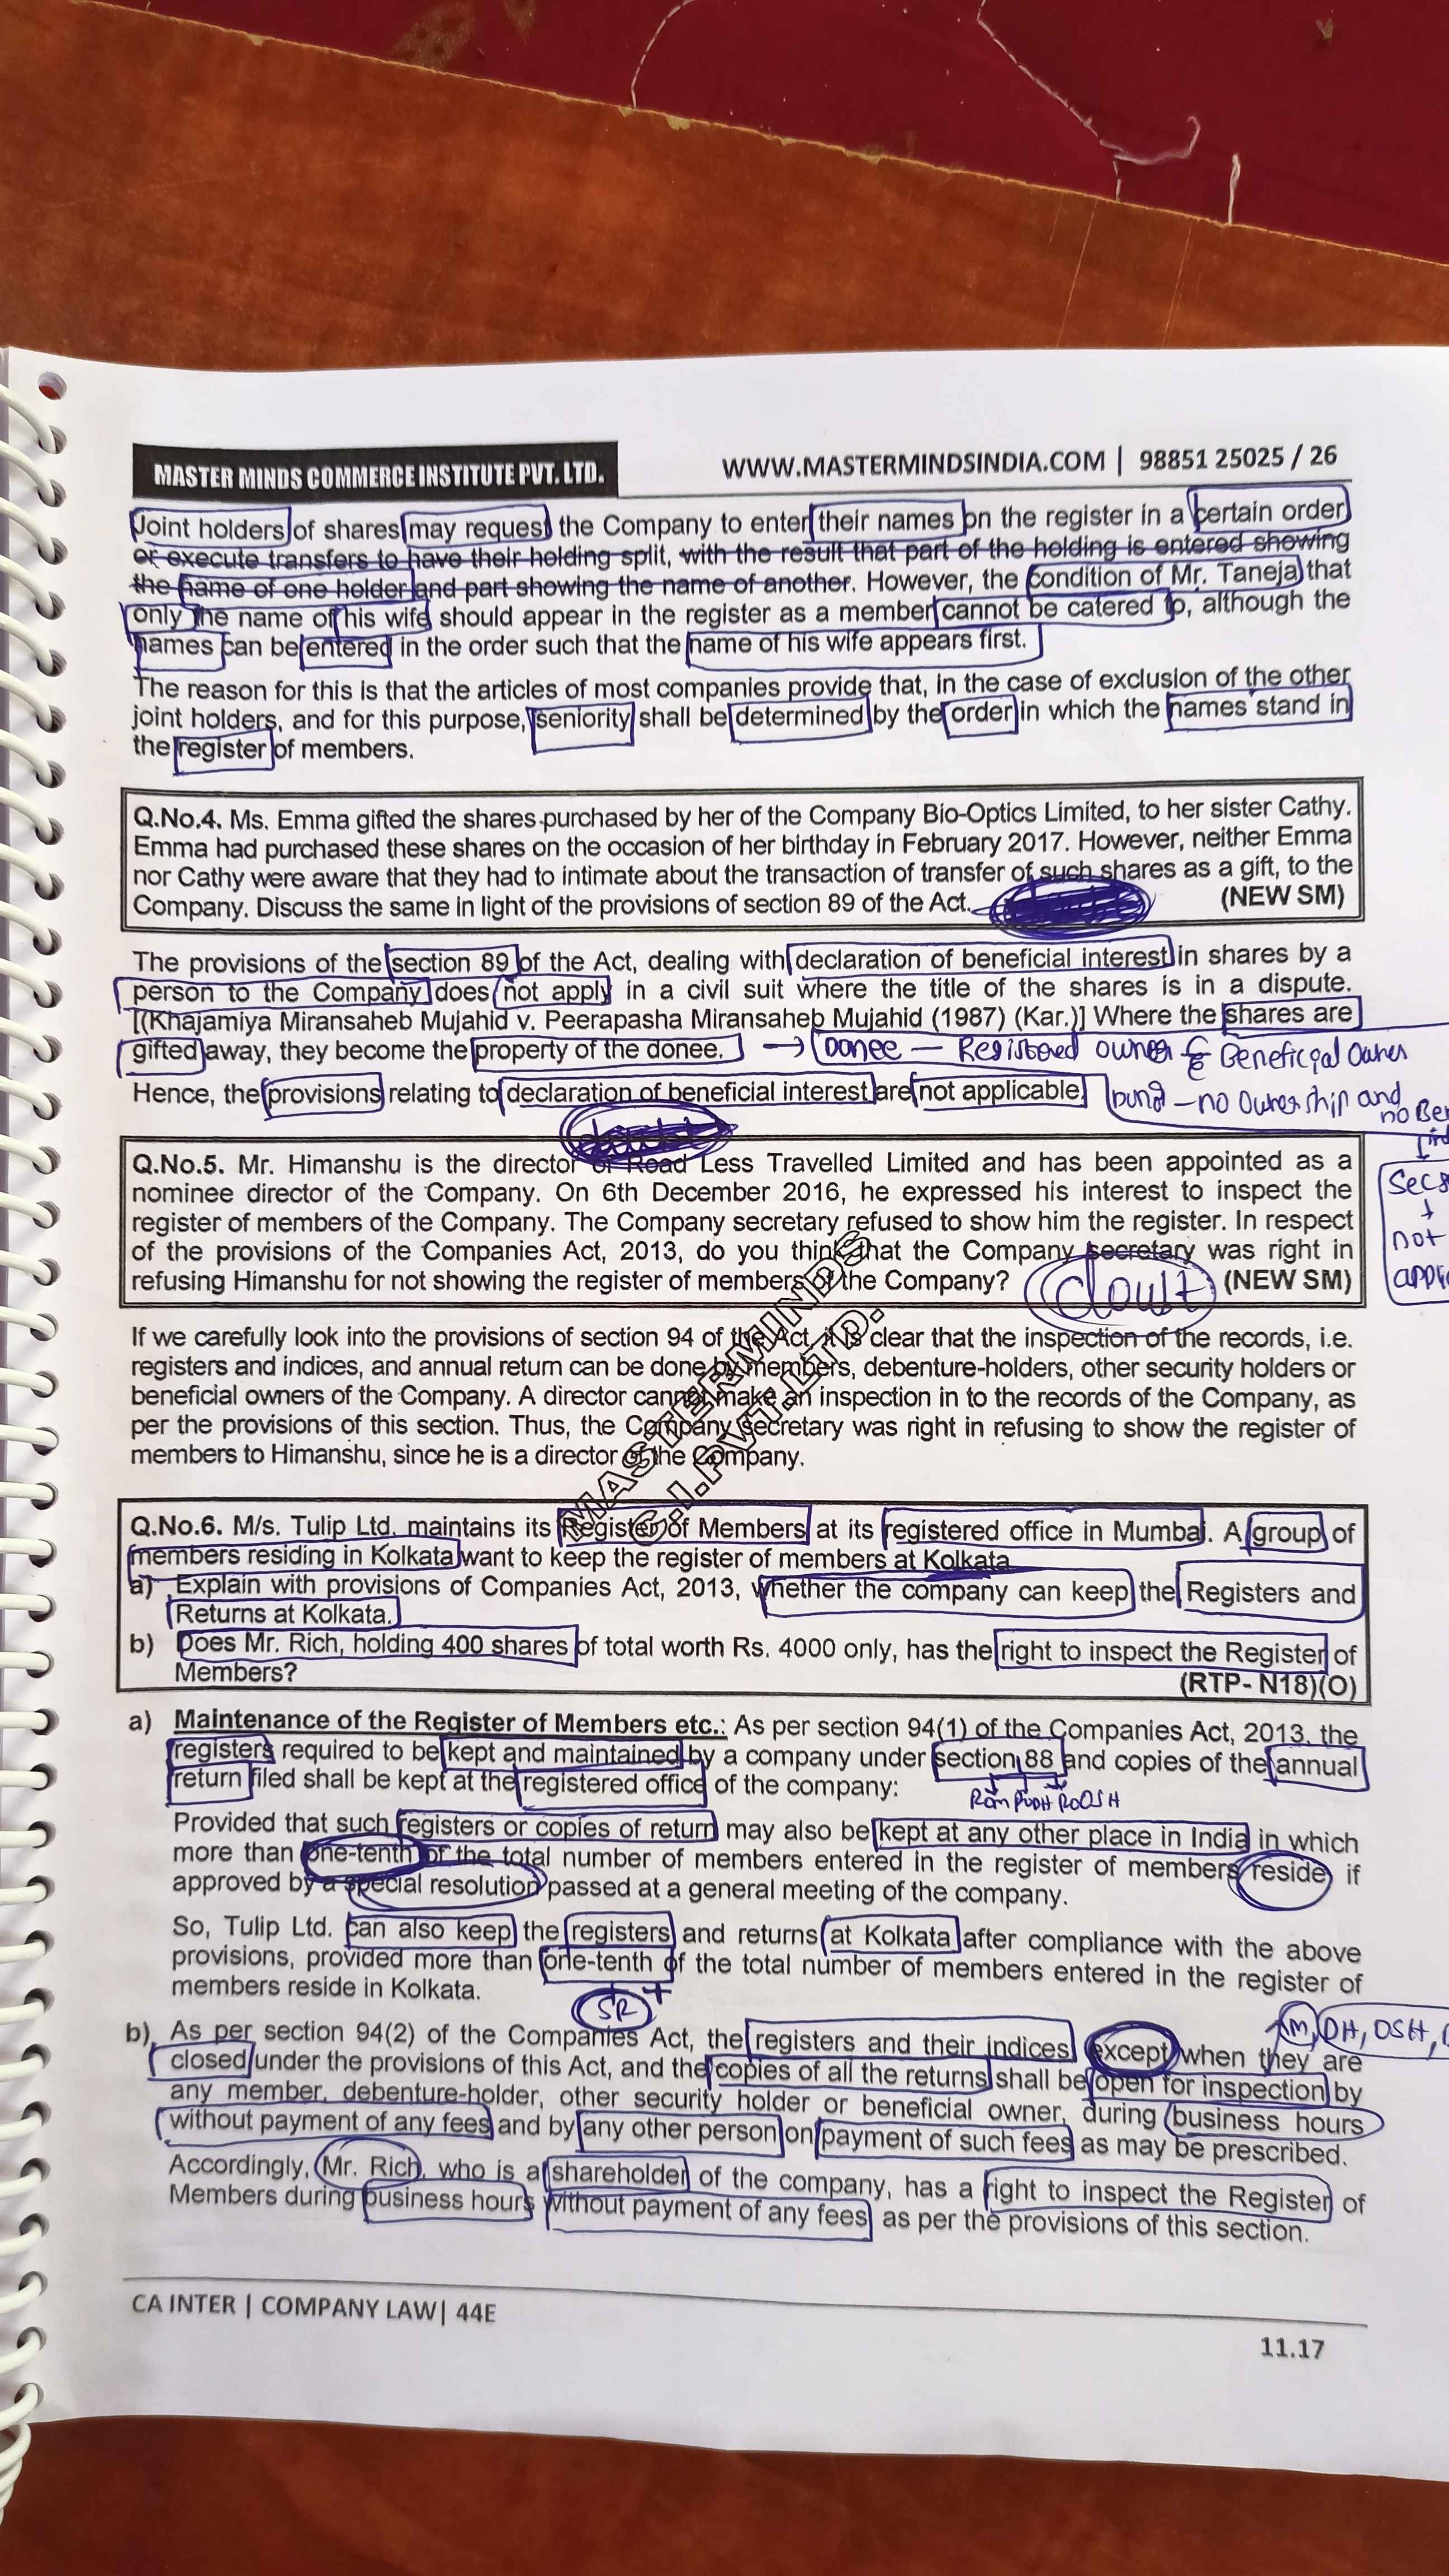 MASTER MINDS COMMERCE INSTITUTE PVT. LTD.
WWW.MASTERMINDSINDIA.COM | 98851 25025 / 26
Joint holders of shares may request the Company to enter their names on the register in a certain order
or execute transfers to have their holding split, with the result that part of the holding is entered showing
the name of one holder and part showing the name of another. However, the condition of Mr. Taneja that
only the name of his wife should appear in the register as a member cannot be catered to, although the
names can be entered in the order such that the name of his wife appears first.
The reason for this is that the articles of most companies provide that, in the case of exclusion of the other
joint holders, and for this purpose, seniority shall be determined by the order in which the names stand in
the register of members.
Q.No.4. Ms. Emma gifted the shares purchased by her of the Company Bio-Optics Limited, to her sister Cathy.
Emma had purchased these shares on the occasion of her birthday in February 2017. However, neither Emma
nor Cathy were aware that they had to intimate about the transaction of transfer of such shares as a gift, to the
Company. Discuss the same in light of the provisions of section 89 of the Act. (NEW SM)
The provisions of the section 89 of the Act, dealing with declaration of beneficial interest in shares by a
person to the Company does not apply in a civil suit where the title of the shares is in a dispute.
[(Khajamiya Miransaheb Mujahid v. Peerapasha Miransaheb Mujahid (1987) (Kar.)] Where the shares are
gifted away, they become the property of the donee. → Donee — Registered owner & Beneficial Owner
Hence, the provisions relating to declaration of beneficial interest are not applicable. — no Ownership and
no Ben
Q.No.5. Mr. Himanshu is the director of Road Less Travelled Limited and has been appointed as a
nominee director of the Company. On 6th December 2016, he expressed his interest to inspect the
register of members of the Company. The Company secretary refused to show him the register. In respect
of the provisions of the Companies Act, 2013, do you think that the Company secretary was right in
refusing Himanshu for not showing the register of members of the Company? doubt (NEW SM)
Sec 8
↓
not
appli
If we carefully look into the provisions of section 94 of the Act, it is clear that the inspection of the records, i.e.
registers and indices, and annual return can be done by members, debenture-holders, other security holders or
beneficial owners of the Company. A director cannot make an inspection in to the records of the Company, as
per the provisions of this section. Thus, the Company secretary was right in refusing to show the register of
members to Himanshu, since he is a director of the Company.
MASTERMINDS
C.I.PVT.LTD.
Q.No.6. M/s. Tulip Ltd. maintains its Register of Members at its registered office in Mumbai. A group of
members residing in Kolkata want to keep the register of members at Kolkata
a) Explain with provisions of Companies Act, 2013, whether the company can keep the Registers and
Returns at Kolkata.
b) Does Mr. Rich, holding 400 shares of total worth Rs. 4000 only, has the right to inspect the Register of
Members? (RTP- N18)(O)
a) Maintenance of the Register of Members etc.: As per section 94(1) of the Companies Act, 2013, the
registers required to be kept and maintained by a company under section 88 and copies of the annual
return filed shall be kept at the registered office of the company:
ROM RODH ROOSH
Provided that such registers or copies of return may also be kept at any other place in India in which
more than one-tenth of the total number of members entered in the register of members reside if
approved by a special resolution passed at a general meeting of the company.
So, Tulip Ltd. can also keep the registers and returns at Kolkata after compliance with the above
provisions, provided more than one-tenth of the total number of members entered in the register of
members reside in Kolkata.
SR +
M, DH, OSH,
b) As per section 94(2) of the Companies Act, the registers and their indices except when they are
closed under the provisions of this Act, and the copies of all the returns shall be open for inspection by
any member, debenture-holder, other security holder or beneficial owner, during business hours
without payment of any fees and by any other person on payment of such fees as may be prescribed.
Accordingly, Mr. Rich, who is a shareholder of the company, has a right to inspect the Register of
Members during business hours without payment of any fees as per the provisions of this section.
CA INTER | COMPANY LAW| 44E
11.17